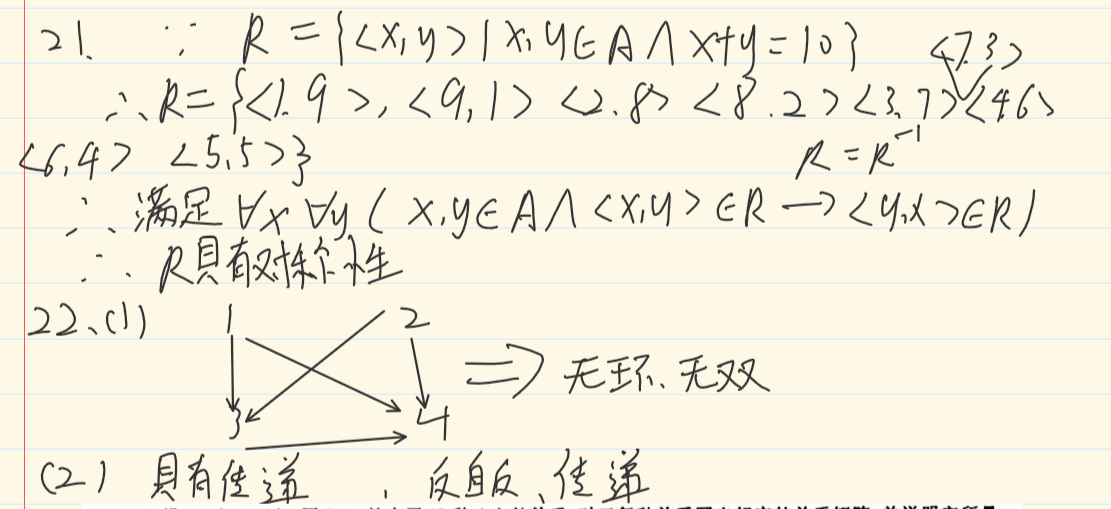 21. ∵ R = {<x,y> | x,y∈A∧x+y=10} <7.3>
∴R= {<1.9>,<9,1> <2.8> <8.2> <3.7> <4 6>
<6,4> <5,5>} R = R⁻¹
∴ 满足 ∀x ∀y ( x,y∈A∧<x,y>∈R → <y,x>∈R)
∴ R具有对称个性
22、(1) 1 2
⇒ 无环、无双
3 4
(2) 具有传递 , 反自反、传递